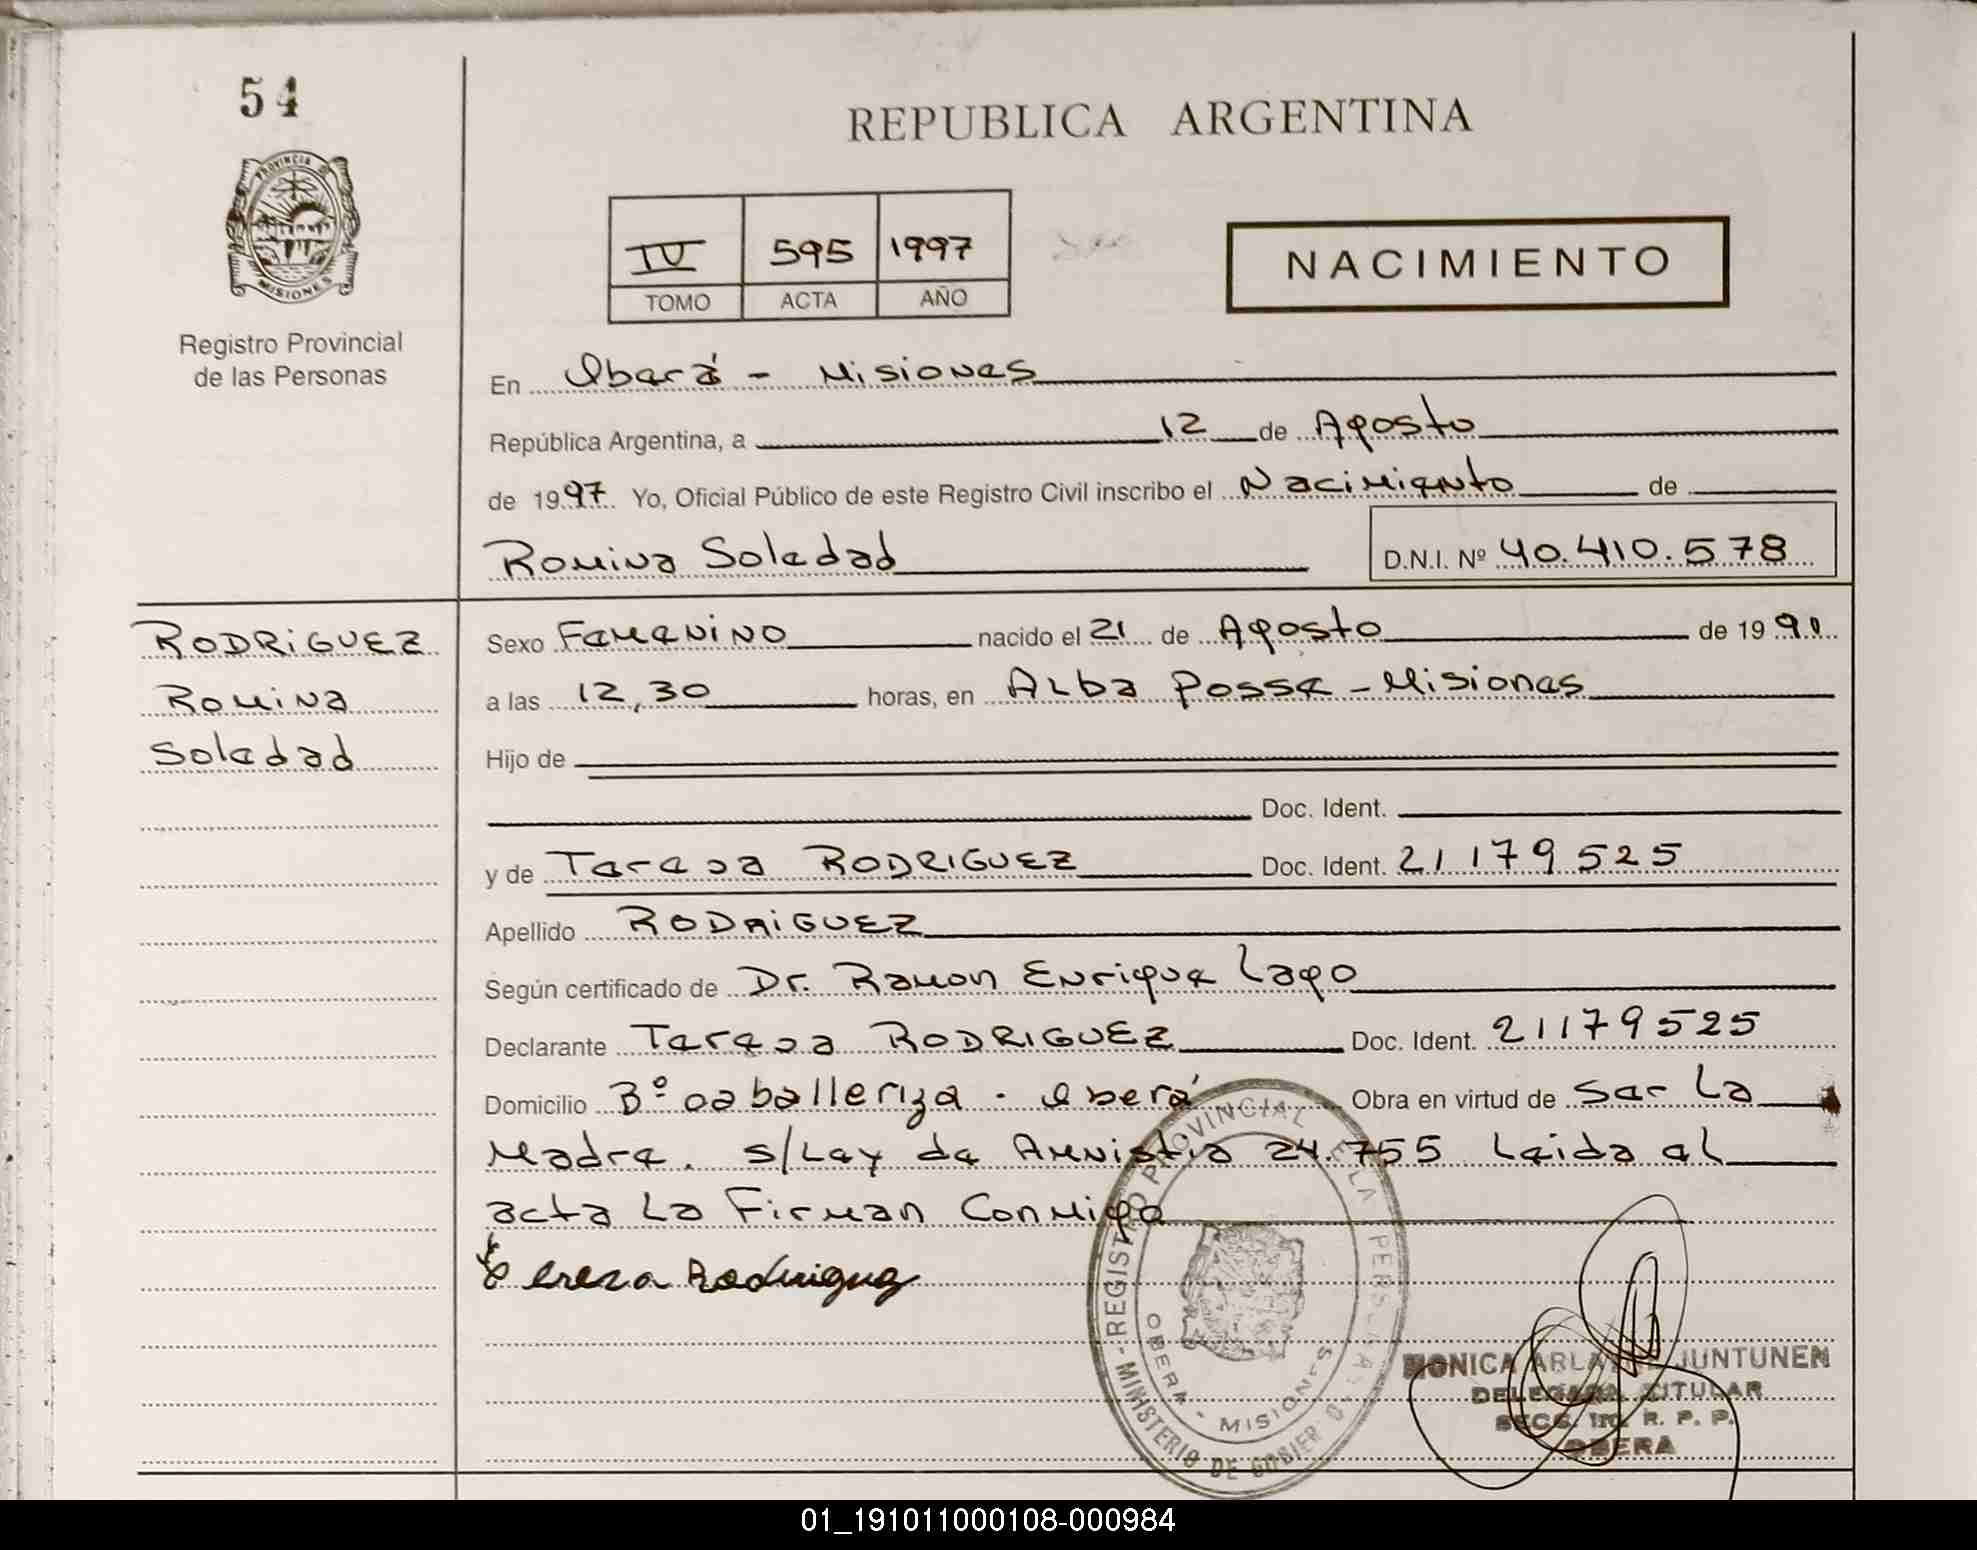 54
PROVINCIA DE
MISIONES
Registro Provincial
de las Personas
REPUBLICA ARGENTINA
IV 595 1997
TOMO ACTA AÑO
NACIMIENTO
En Oberá - Misiones
República Argentina, a 12 de Agosto
de 1997 Yo, Oficial Público de este Registro Civil inscribo el Nacimiento de
Romina Soledad D.N.I. Nº 40.410.578
RODRIGUEZ
Romina
Soledad
Sexo Femenino nacido el 21 de Agosto de 19
a las 12,30 horas, en Alba Posse - Misiones
Hijo de
Doc. Ident.
y de Teresa RODRIGUEZ Doc. Ident. 21179525
Apellido RODRIGUEZ
Según certificado de Dr. Ramon Enrique Lago
Declarante Teresa RODRIGUEZ Doc. Ident. 21179525
Domicilio Bº caballeriza - Oberá Obra en virtud de ser La
Madre. s/Ley de Amnistia 24.755 Leida el
acta La Firman Conmigo
Tereza Rodriguez
REGISTRO PROVINCIAL DE LA PERSONAS
MINISTERIO DE GOBIERNO
OBERA - MISIONES
MONICA JUNTUNEN
DELEGADA TITULAR
SECC. R. P. P.
OBERA
01_191011000108-000984